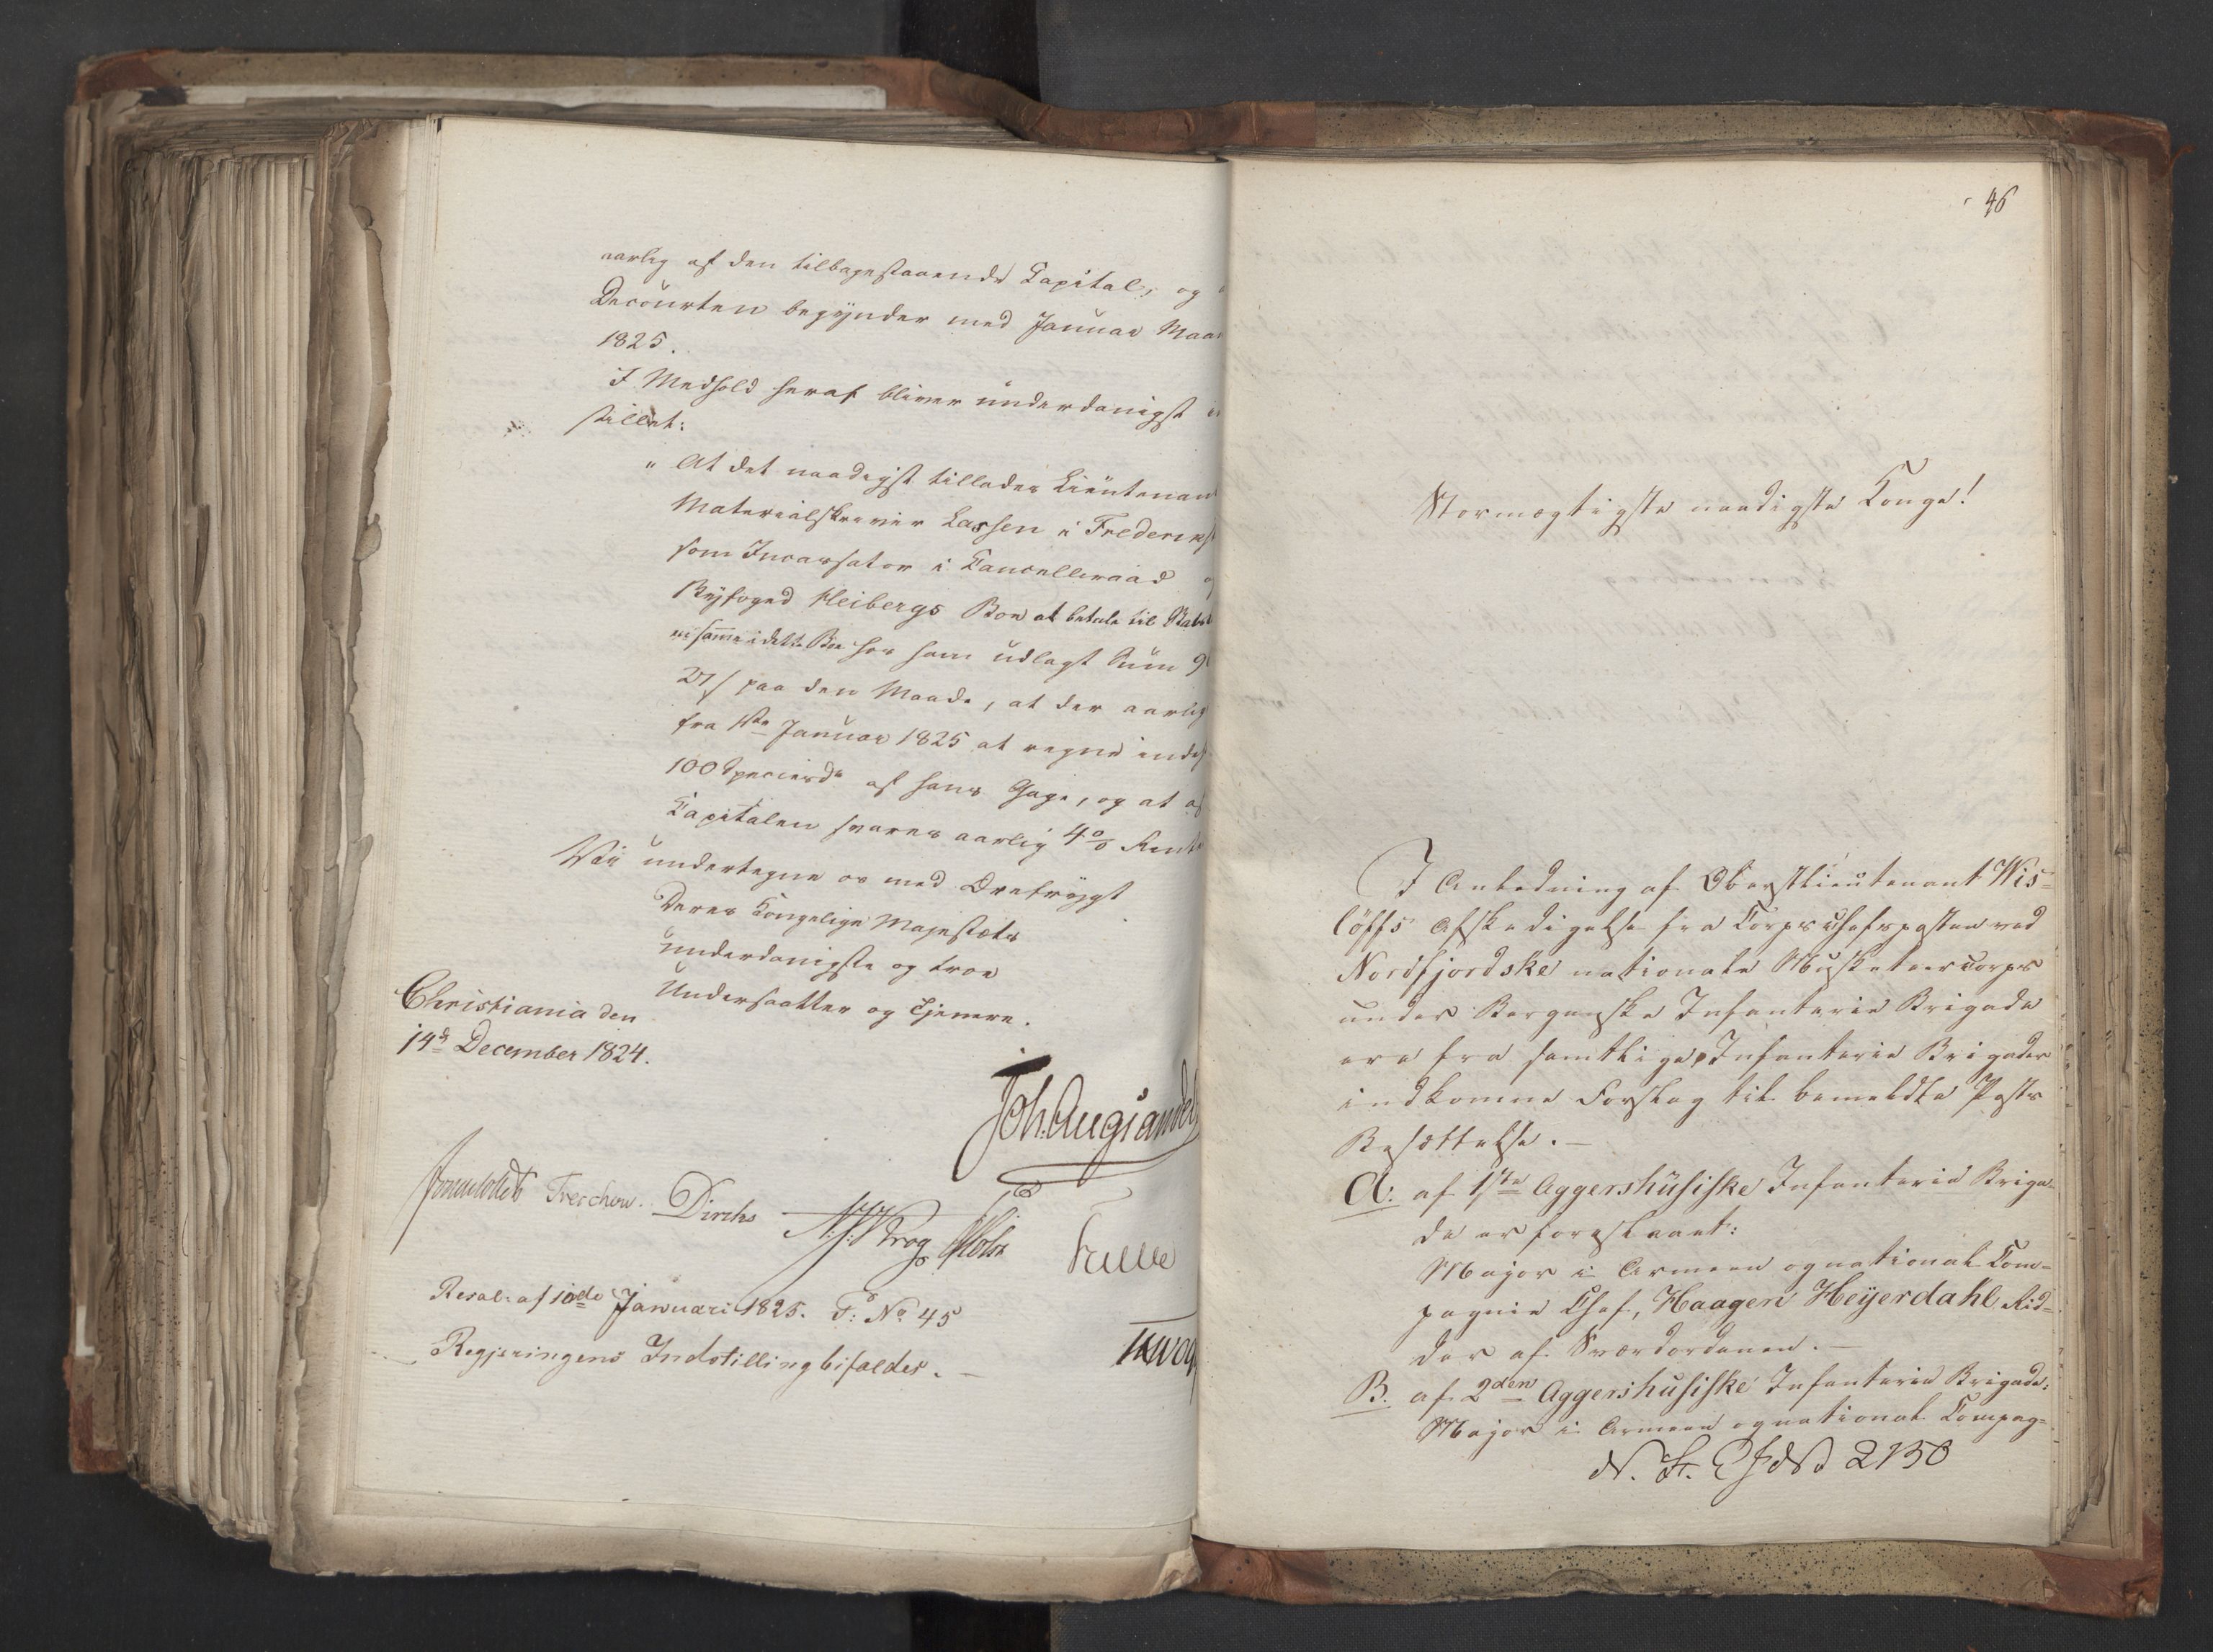 aarlig af den tilbagestaaende Capital, og
Decourten begynder med Januar Maa
1825.
I Medhold heraf bliver underdanigst
stillet:
" At det naadigst tillades Lieutenant
Materialskriver Lassen i Frederiks
som Incassator i Cancelleraad
Byfoged Heibergs Boe at betale til Stats
samme i dette Boe hos ham udlagt Sum
27/ paa den Maade, at der aarlig
fra 1ste Januar 1825 at regne inde
100 Speciesdr af hans Gage, og at af
Capitalen svares aarlig 4 % Rente
Vii undertegne os med Ærefrygt
Deres Kongelige Majestæts
underdanigste og troe
Undersaatter og Tjenere.
Christiania den
14de December 1824.
Joh. Aug: Sandels
Sommerhielm Treschow. Diriks
Krog Holst
Resol: af 10de Januari 1825. No 45
Regjeringens Indstilling bifaldes.
46
Stormægtigste naadigste Konge!
I Anledning af Oberstlieutenant Wis=
löffs Afskedigelse fra Corpschefsposten ved
Nordfjordske nationale Musketeercorps
under Bergenske Infanterie Brigade
ere fra samtlige Infanterie Brigader
indkomne Forslag til bemeldte Posts
Besættelse. —
A. af 1ste Aggershusiske Infanterie Briga=
de er foreslaaet:
Major i Armeen og national Com=
pagnie Chef, Haagen Heyerdahl Rid=
der af Sværdordenen. —
B. af 2den Aggershusiske Infanterie Brigade:
Major i Armeen og national Compag=